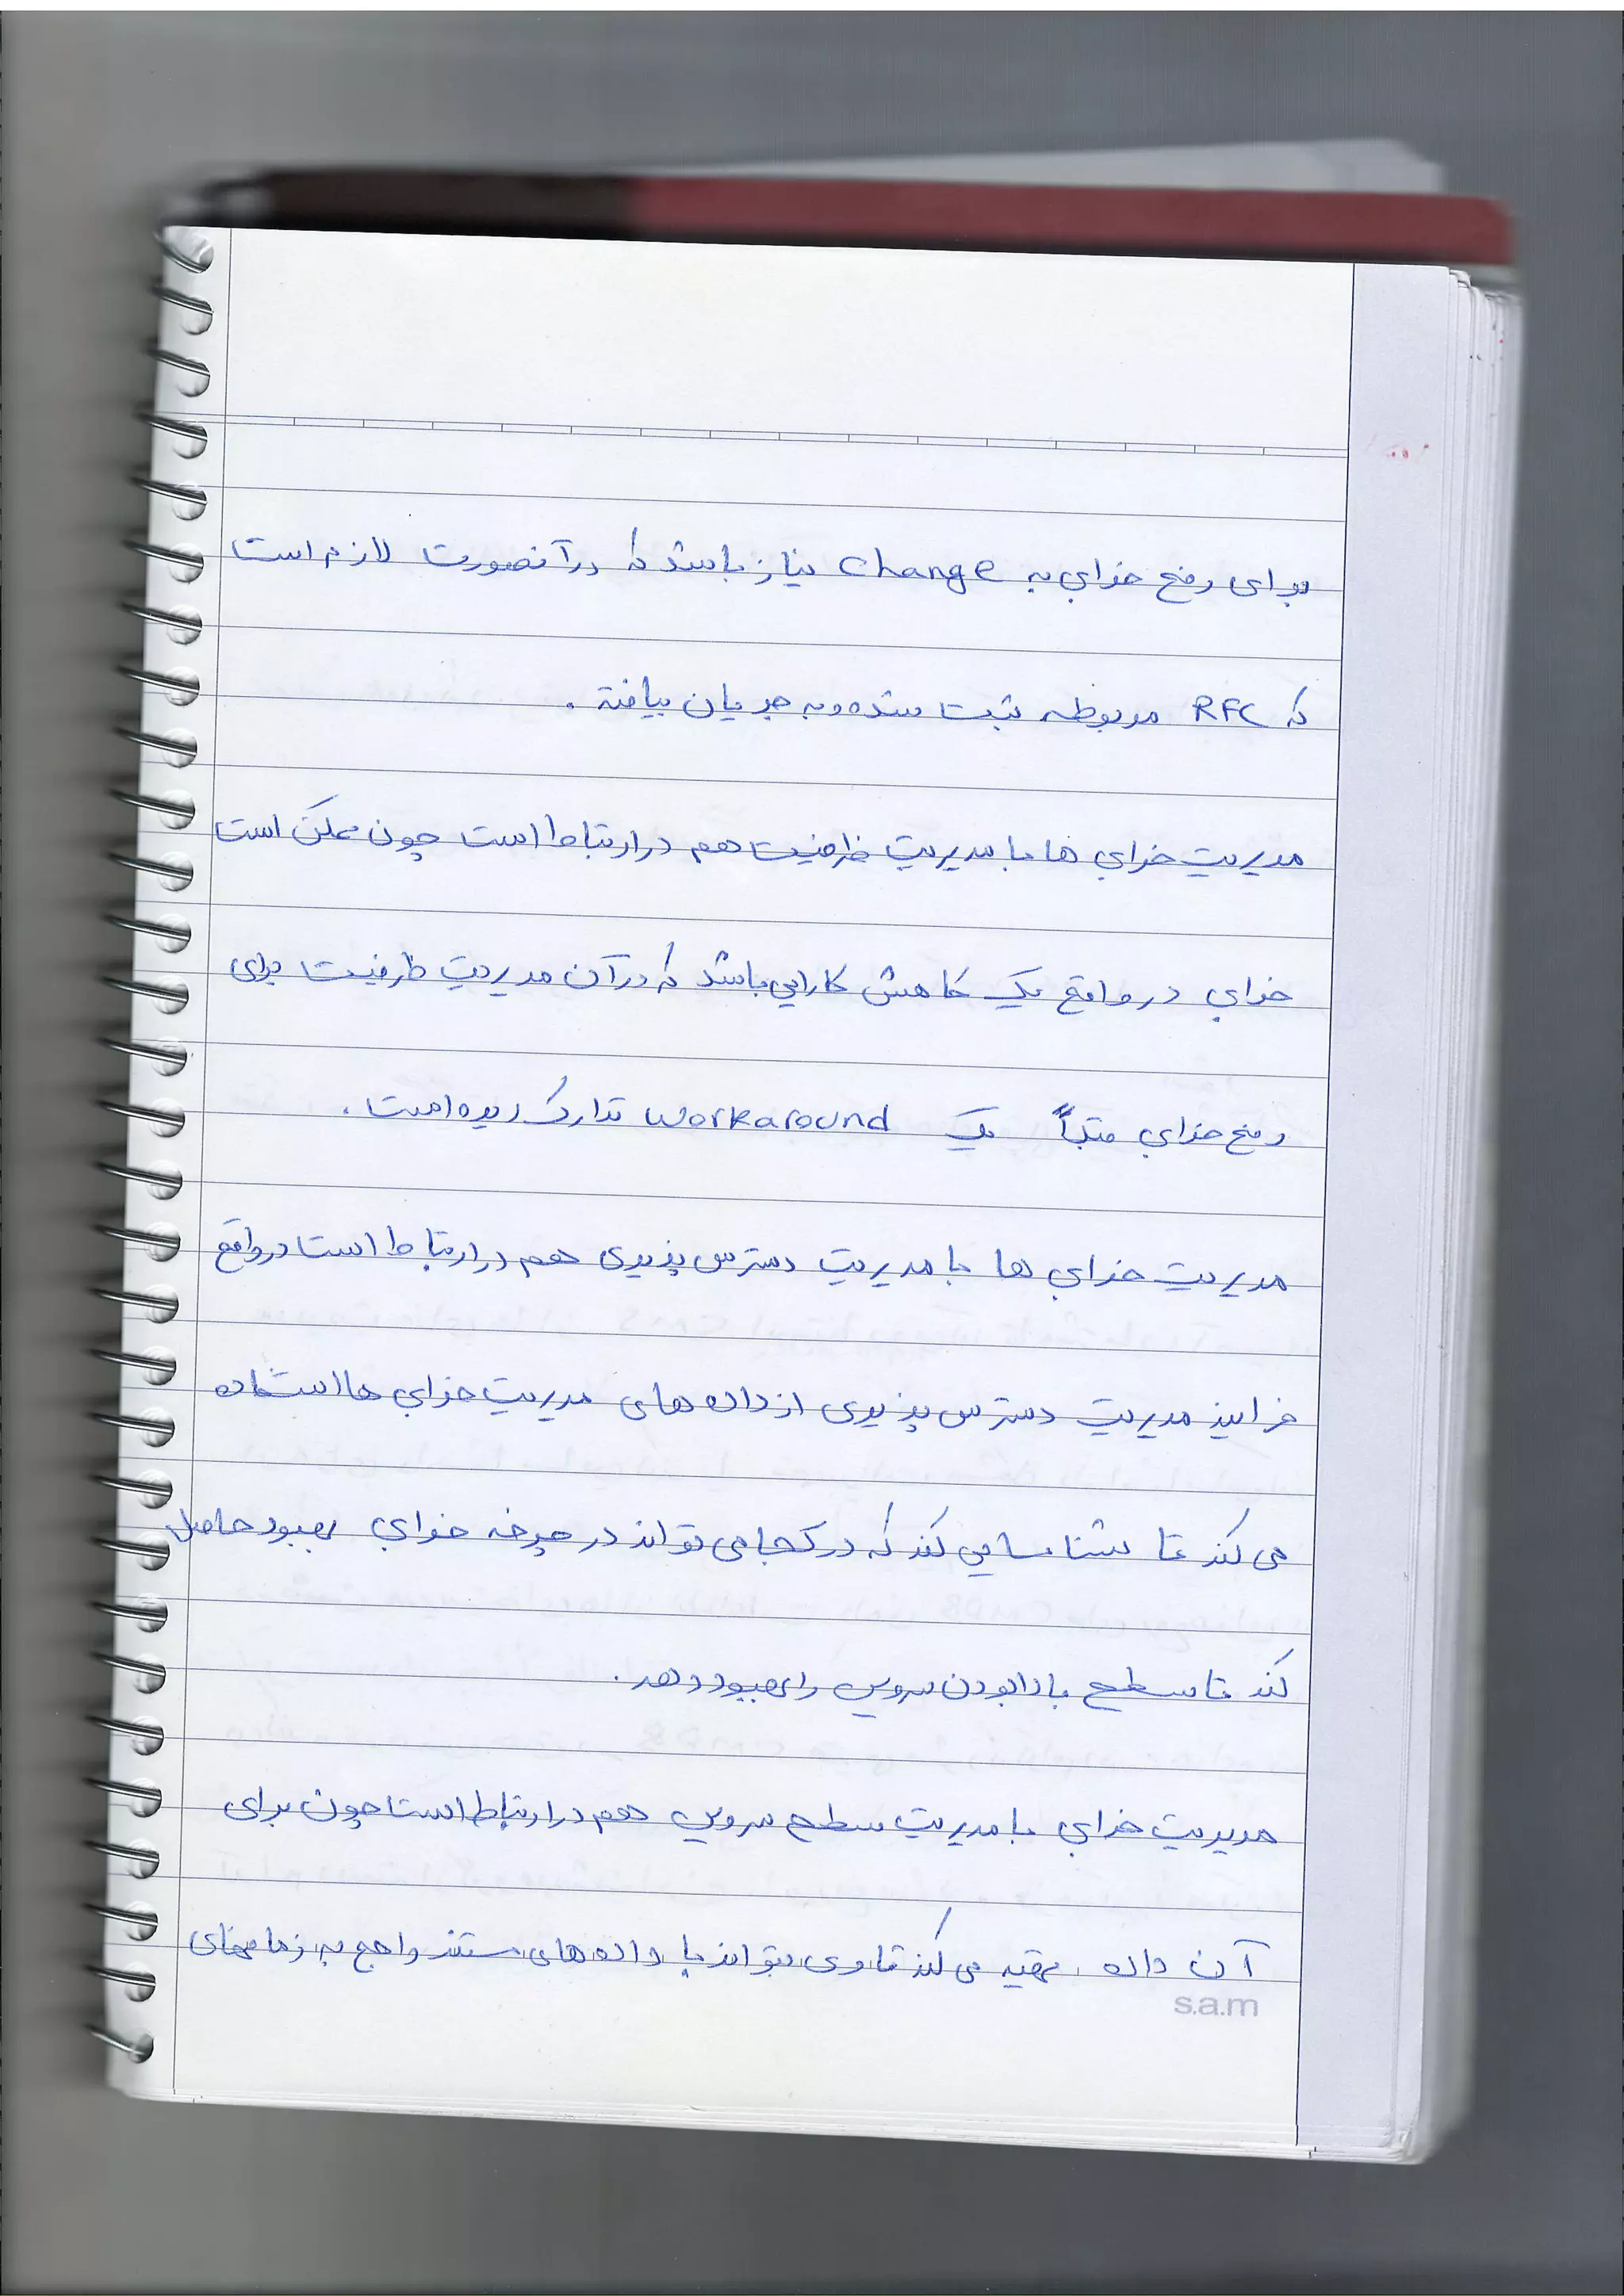 برای رفع خرابی به change نیاز باشد که درآنصورت لازم است
که RFC مربوطه ثبت شده و به جریان بیافتد .
مدیریت خرابی ها با مدیریت ظرفیت هم در ارتباط است چون ممکن است
خرابی در واقع یک کاهش کارایی باشد که در آن مدیریت ظرفیت برای
رفع خرابی یک workaround تدارک دیده است .
مدیریت خرابی ها با مدیریت دسترس پذیری هم در ارتباط است در واقع
فرایند مدیریت دسترس پذیری از داده های مدیریت خرابی ها استفاده
می کند تا شناسایی کند که در کجا می تواند در چرخه خرابی بهبود حاصل
کند تا سطح بودن سرویس را بهبود دهد .
مدیریت خرابی با مدیریت سطح سرویس هم در ارتباط است چون برای
آن داده تهیه می کند تا وی بتواند با داده های مستند راجع به زمانهای
s.a.m